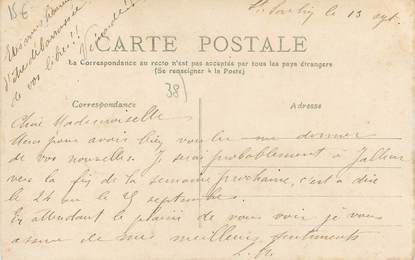 15€
le 13 sept.
CARTE POSTALE
La Correspondance au recto n'est pas acceptée par tous les pays étrangers
(Se renseigner à la Poste)
d'être débarrassée
de vos
38)
Correspondance
Adresse
Chère Mademoiselle
Merci pour avoir bien voulu me donner
de vos nouvelles. Je serai probablement à Jallieu
vers la fin de la semaine prochaine, c'est à dire
le 24 ou le 25 septembre.
En attendant le plaisir de vous voir je vous
assure de mes meilleurs sentiments